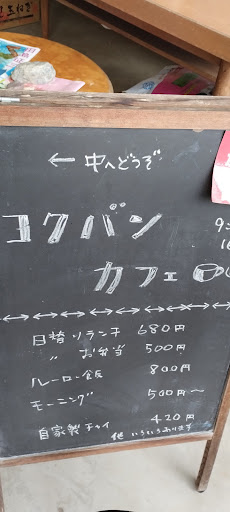 ← 中へどうぞ
コクバン
カフェ
9:
日替りランチ 680円
〃 お弁当 500円
ルーロー飯 800円
モーニング 500円〜
自家製チャイ 420円
他 いろいろあります